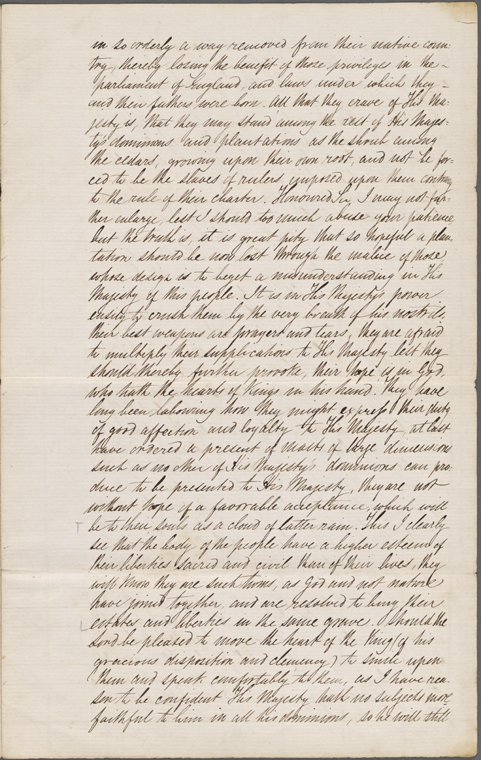 in so orderly a way removed from their native coun-
try, thereby losing the benefit of those priviliges in the -
parliament of England, and laws under which they -
and their fathers were born. All that they crave of His Ma-
jesty is, that they may stand among the rest of His Majes-
ty's dominions and plantations as the shrub among
the cedars, growing upon their own root, and not be for-
ced to be the slaves of rulers imposed upon them contrary
to the rule of their charter. Honoured Sir, I may not fur-
ther enlarge, lest I should too much abuse your patience
but the truth is, it is great pity that so hopeful a plan-
tation should be now lost through the malice of those
whose design is to beget a misunderstanding in His
Majesty of this people. It is in His Majesty's power
easily to crush them by the very breath of his nostrils,
their best weapons are prayers and tears, they are afraid
to multiply their supplications to His Majesty lest they
should thereby further provoke, their hope is in God,
who hath the hearts of Kings in his hand. They have
long been labouring how they might express their duty
of good affection and loyalty to His Majesty, at last
have ordered a present of masts of large dimensions
such as no other of His Majesty's dominions can pro-
duce to be presented to His Majesty, they are not
without hope of a favorable acceptance, which will
be to their souls as a cloud of latter rain. This I clearly
see that the body of the people have a higher esteem of
their liberties sacred and civil than of their lives, they
well know they are such twins, as God and not nature
have joined together, and are resolved to bury their
estates and liberties in the same grave. Should the
Lord be pleased to move the heart of the King (of his
gracious disposition and clemency) to smile upon
them and speak comfortably to them, as I have rea-
son to be confident His Majesty hath no subjects more
faithful to him in all his dominions, so he will still